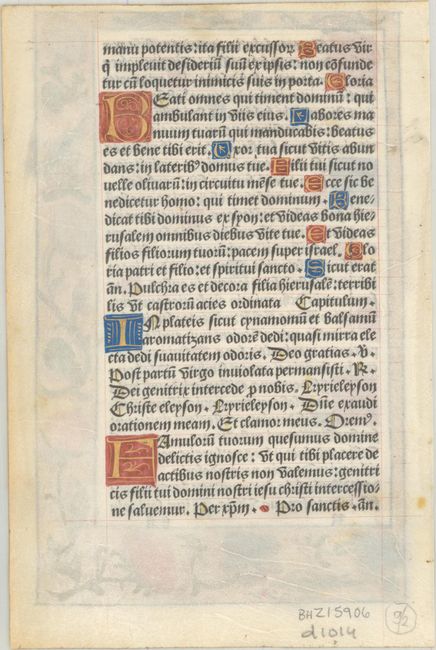 manu potentis: ita filii excussoꝝ Beatus vir
q̃ impleuit desideriũ suũ ex ipsis: non cõfunde
tur cũ loquetur inimicis suis in porta. Gloria
BEati omnes qui timent dominũ: qui
ambulant in viis eius. Labores ma
nuum tuarũ qui manducabis: beatus
es et bene tibi erit. Uxor tua sicut vitis abun
dans: in laterib⁹ domus tue. Filii tui sicut no
uelle oliuarũ: in circuitu mẽse tue. Ecce sic be
nedicetur homo: qui timet dominum. Bene⸗
dicat tibi dominus ex syon: et videas bona hie⸗
rusalem omnibus diebus vite tue. Et videas
filios filiorum tuorũ: pacem super israel. Glo
ria patri et filio: et spiritui sancto. Sicut erat
añ. Pulchra es et decora filia hierusalẽ: terribi
lis vt castrorũ acies ordinata Capitulum.
IN plateis sicut cynamomũ et balsamũ
aromatizans odorẽ dedi: quasi mirra ele
cta dedi suauitatem odoris. Deo gratias. V.
Post partũ virgo inuiolata permansisti. R.
Dei genitrix intercede ꝓ nobis. Kyrieleyson
Christe eleyson. Kyrieleyson. Dñe exaudi
orationem meam. Et clamor meus. Orem⁹.
FAmulorũ tuorum quesumus domine
delictis ignosce: vt qui tibi placere de
actibus nostris non valemus: genitri
cis filii tui domini nostri iesu christi intercessio⸗
ne saluemur. Per xp̃m. Pro sanctis. añ.
BHZ15906
d1014
92